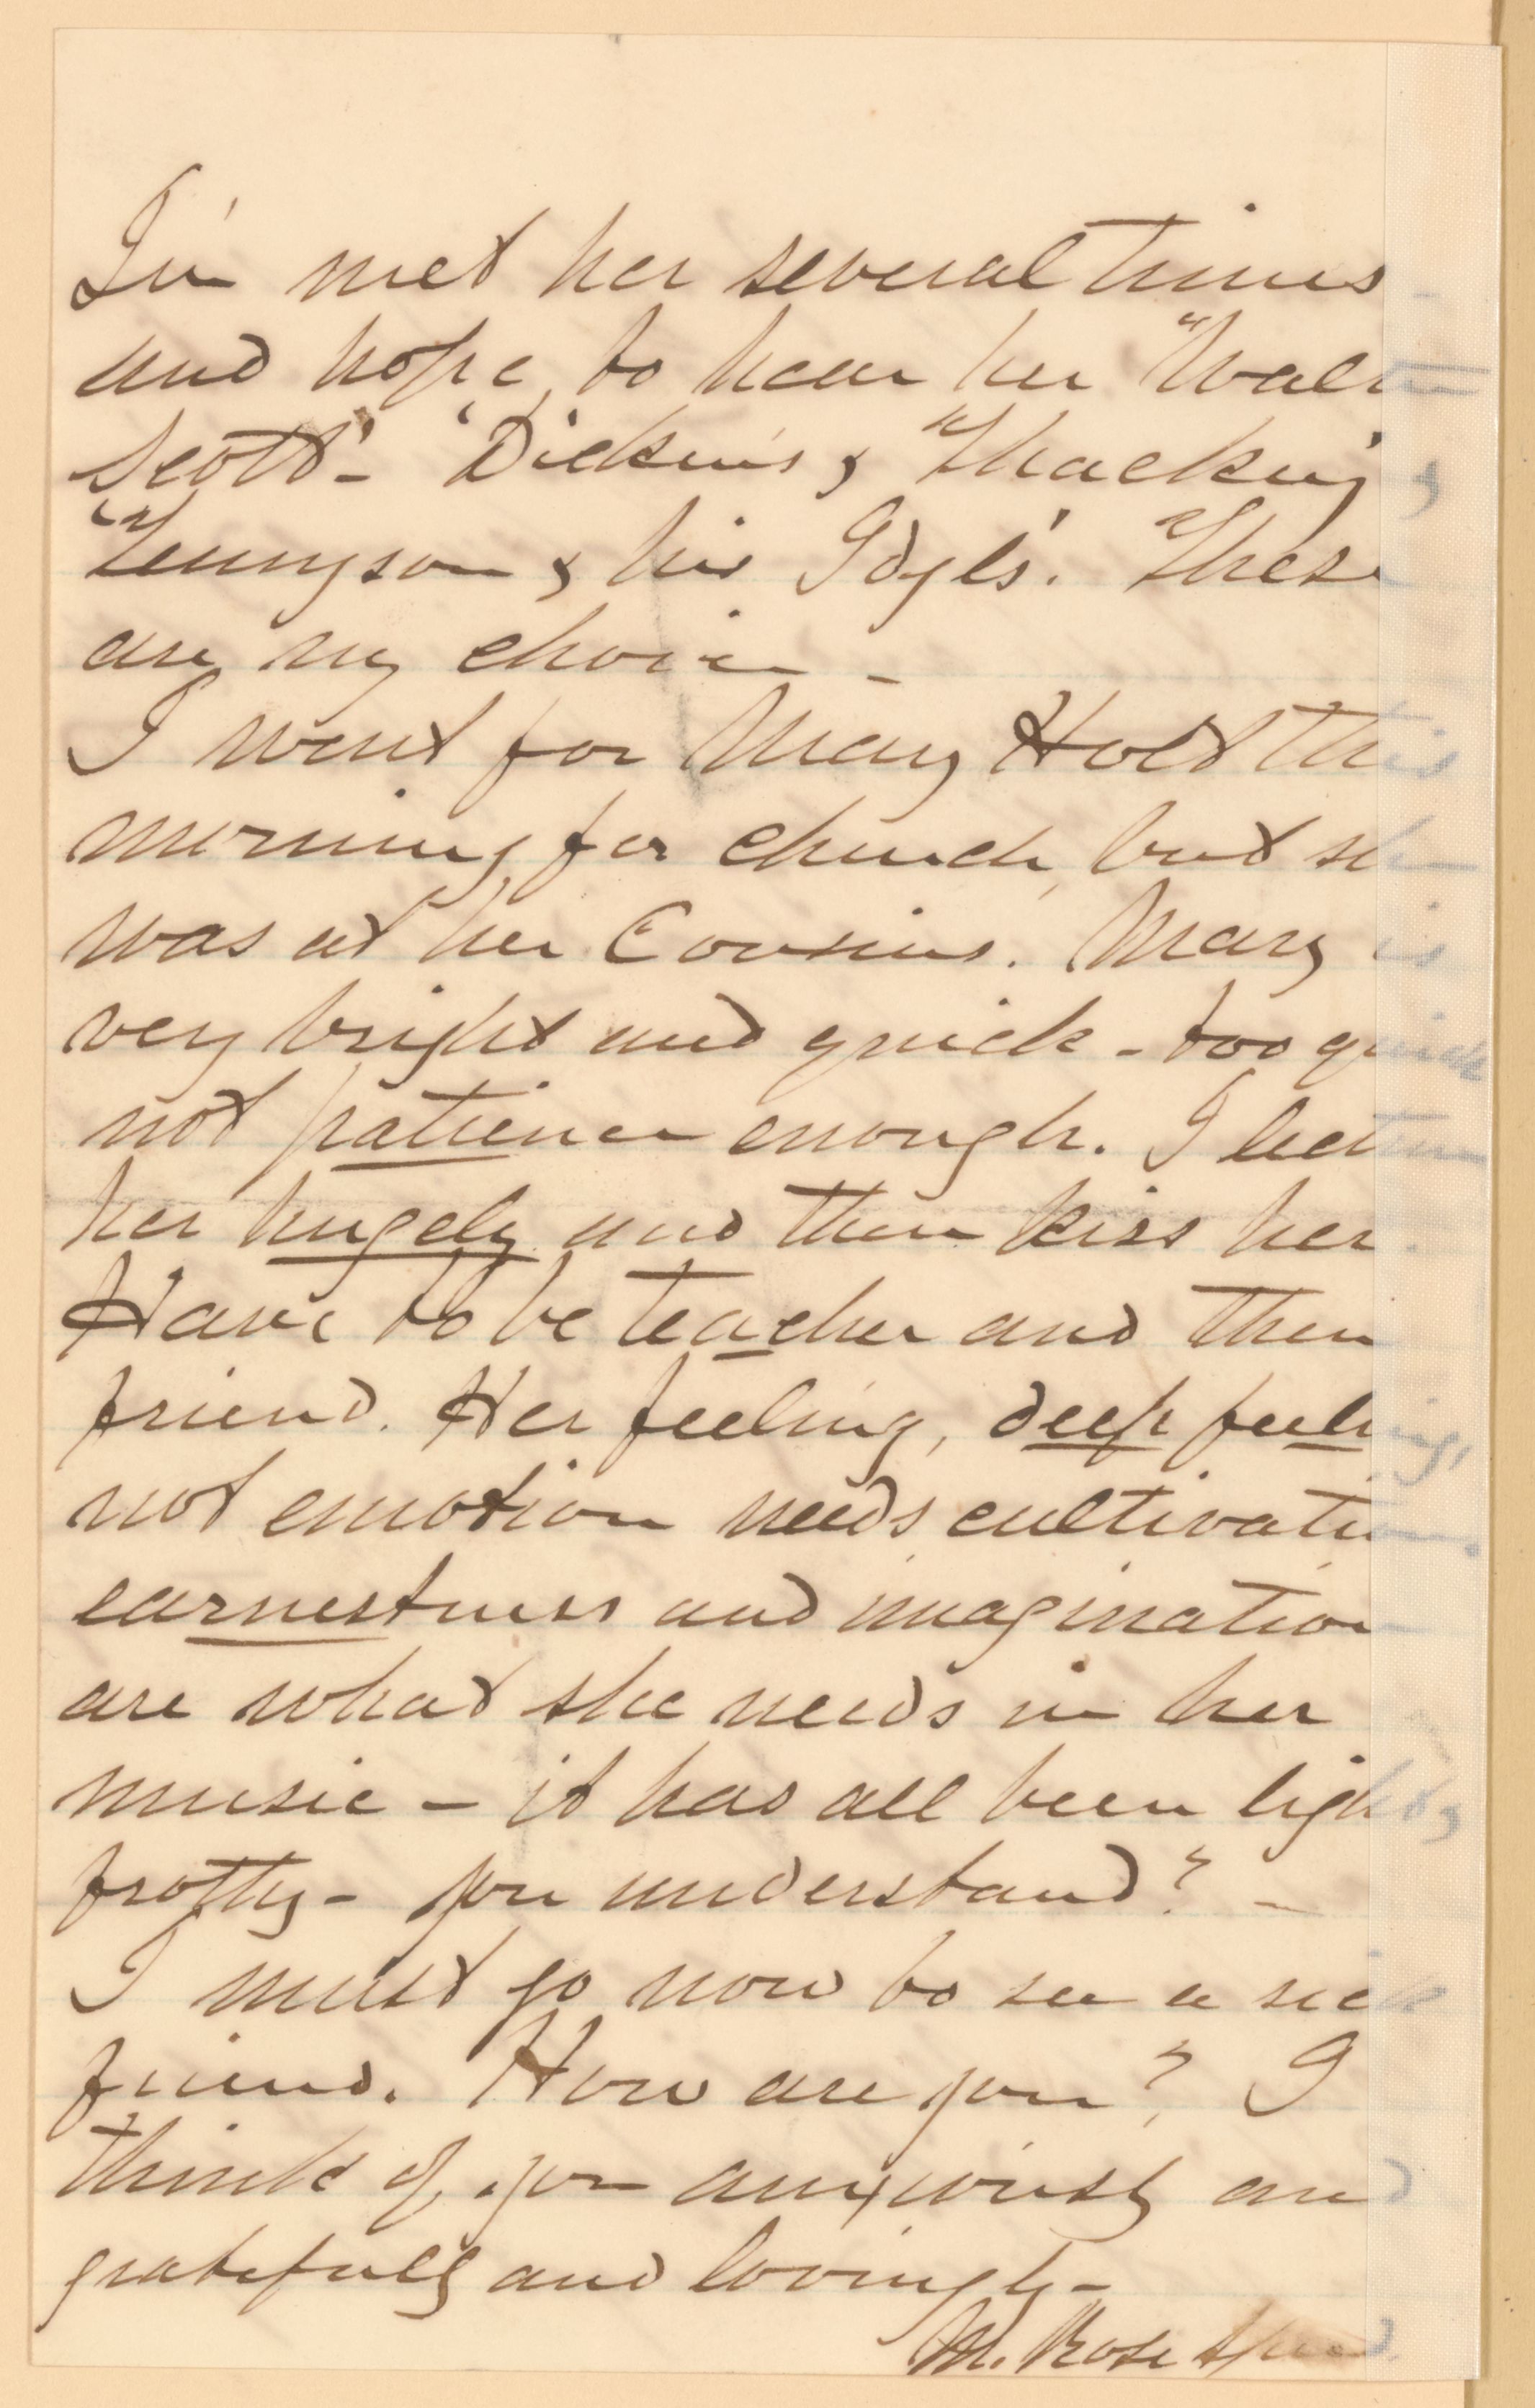 I've met her several times -
and hope, to hear her "Walter
Scott' - 'Dickens & "Thackery' &
"Tennyson & his Idyls'. These
are my choice -
I went for Mary Holt this
morning for church, but she
was at her Cousins. Mary is
very bright and quick - too quick
not patience enough. I lecture
her hugely and then kiss her.
Have to be teacher and then
friend. Her feeling, deep feeling,
not emotion needs cultivation.
earnestness and imagination
are what she needs in her
music - it has all been light,
frothy - you understand? -
I must go now to see a sick
friend. How are you? I
think of you anxiously and
gratefully and lovingly -
M. Rose Speed.